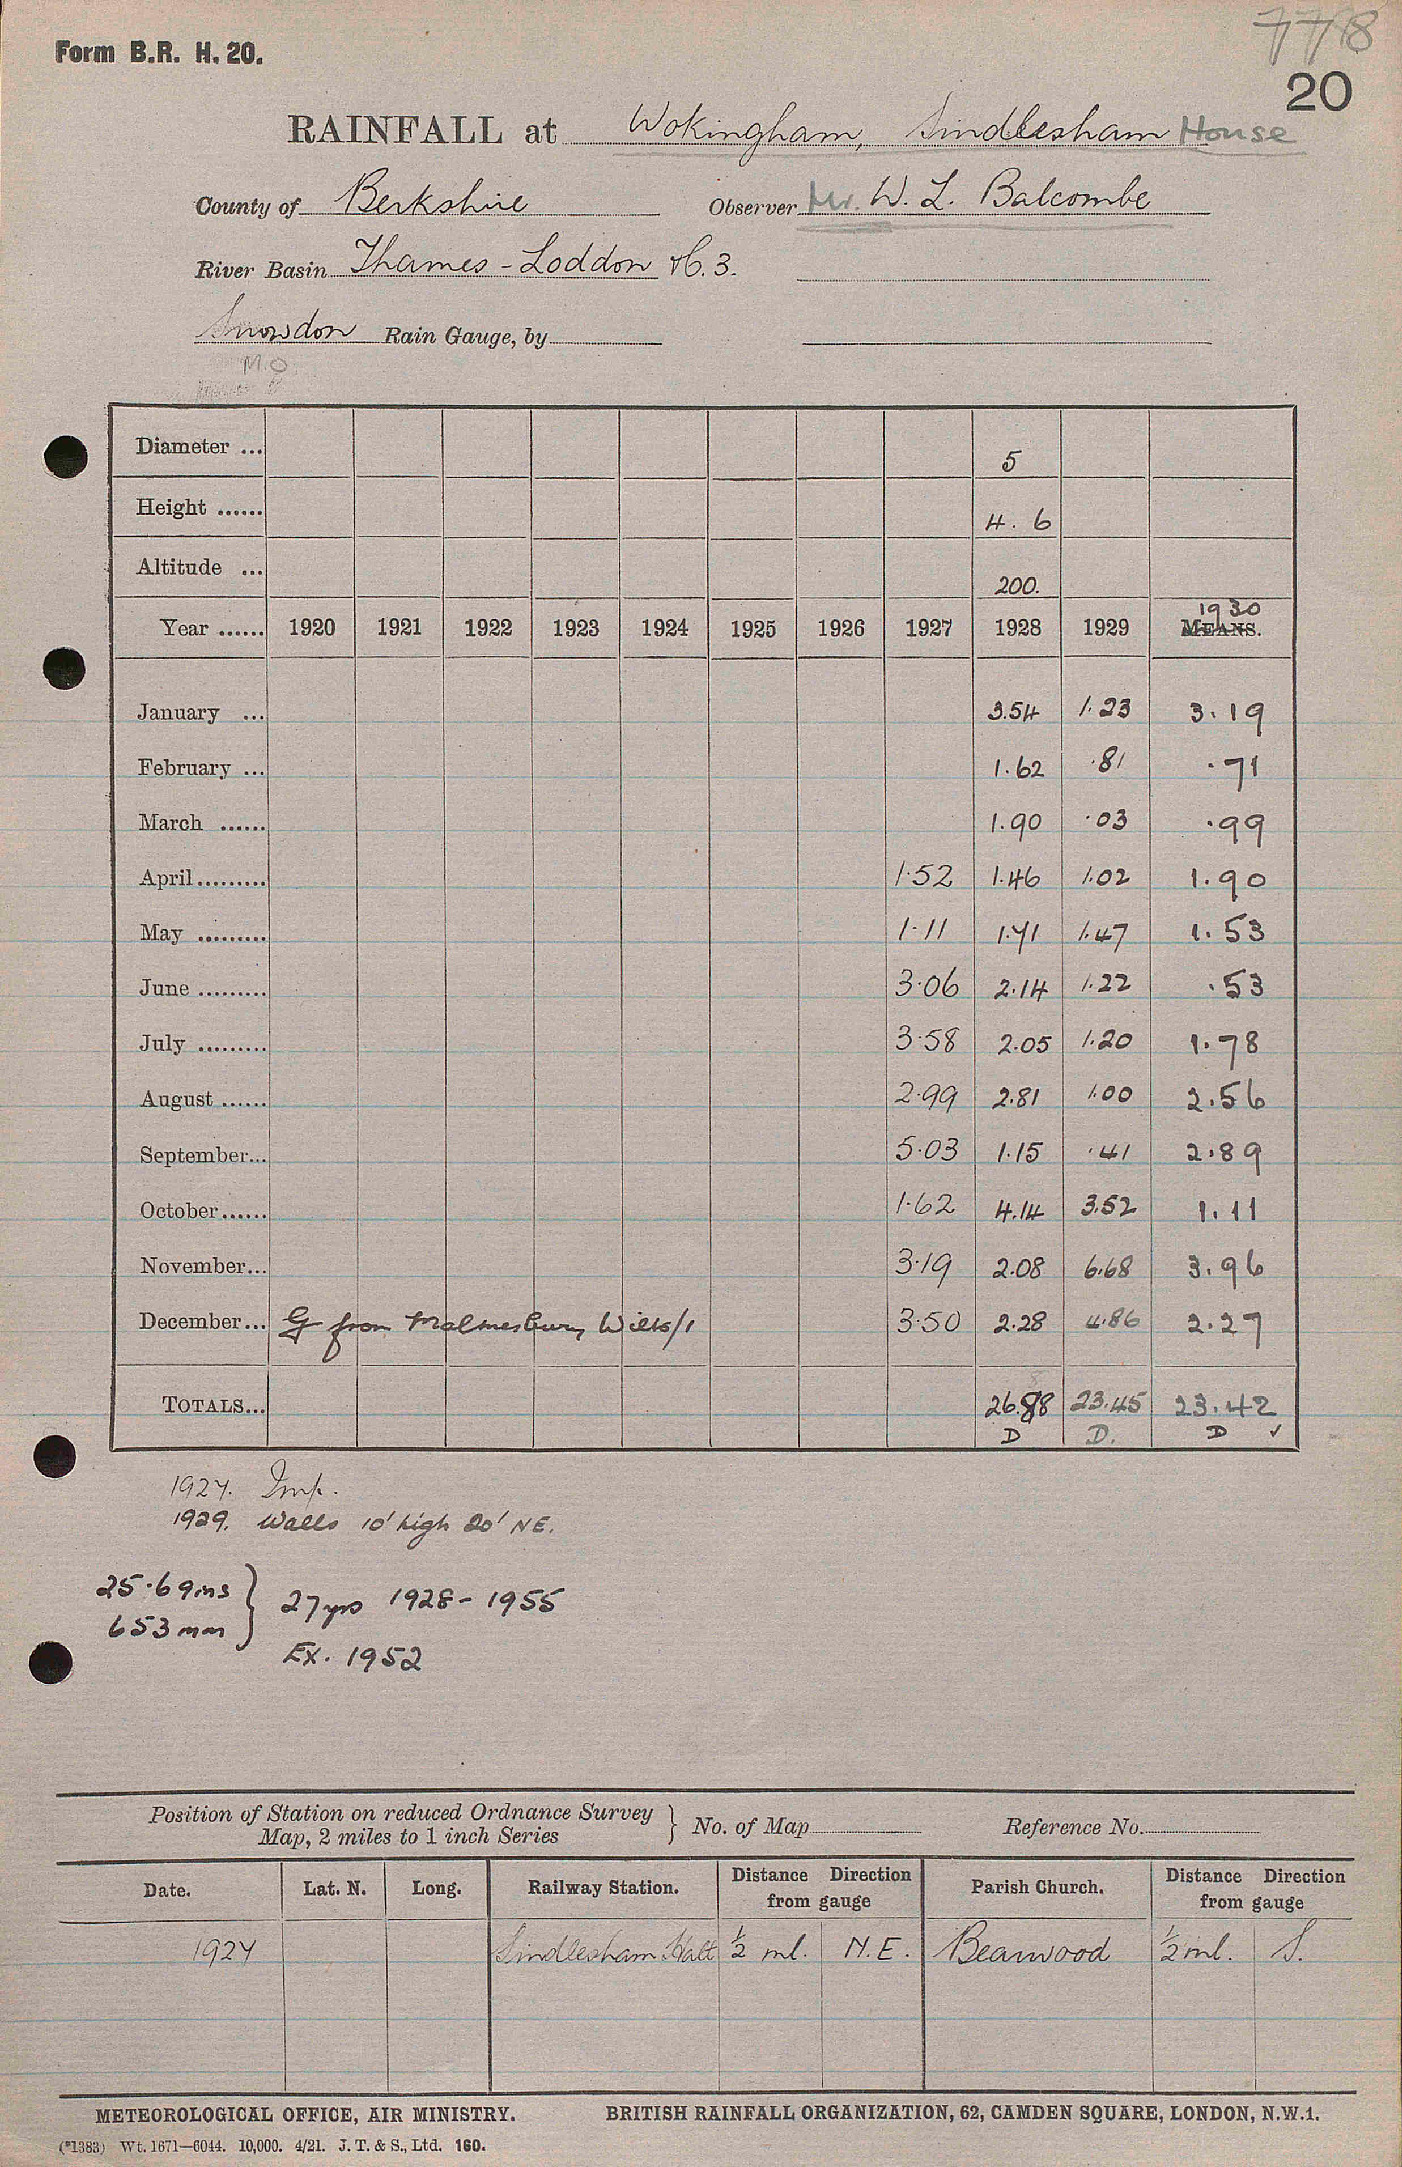 Form B.R. H. 20.
778
20
RAINFALL at Wokingham, Sindlesham House
County of Berkshire Observer Mr. W. L. Balcombe
River Basin Thames - Loddon &c. 3.
Snowdon Rain Gauge, by
M.O
Diameter ... 5
Height ...... 4. 6
Altitude ... 200.
Year ...... 1920 1921 1922 1923 1924 1925 1926 1927 1928 1929 1930 MEANS.
January ... 3.54 1.23 3.19
February ... 1.62 .81 .71
March ...... 1.90 .03 .99
April ......... 1.52 1.46 1.02 1.90
May ......... 1.11 1.71 1.47 1.53
June ......... 3.06 2.14 1.22 .53
July ......... 3.58 2.05 1.20 1.78
August ...... 2.99 2.81 1.00 2.56
September... 5.03 1.15 .41 2.89
October...... 1.62 4.14 3.52 1.11
November... 3.19 2.08 6.68 3.96
December... G from Malmesbury Wilts/1 3.50 2.28 4.86 2.27
TOTALS... 26.88 23.45 23.42
D D. D ✓
1927. Imp.
1929. Walls 10' high 20' NE.
25.69ins } 27 yrs 1928 - 1955
653mm
Ex. 1952
Position of Station on reduced Ordnance Survey Map, 2 miles to 1 inch Series } No. of Map Reference No.
Date. Lat. N. Long. Railway Station. Distance Direction from gauge Parish Church. Distance Direction from gauge
1927 Sindlesham Halt ½ ml. N.E. Bearwood ½ ml. S.
METEOROLOGICAL OFFICE, AIR MINISTRY. BRITISH RAINFALL ORGANIZATION, 62, CAMDEN SQUARE, LONDON, N.W.1.
(*1383) Wt. 1671—6044. 10,000. 4/21. J. T. & S., Ltd. 160.